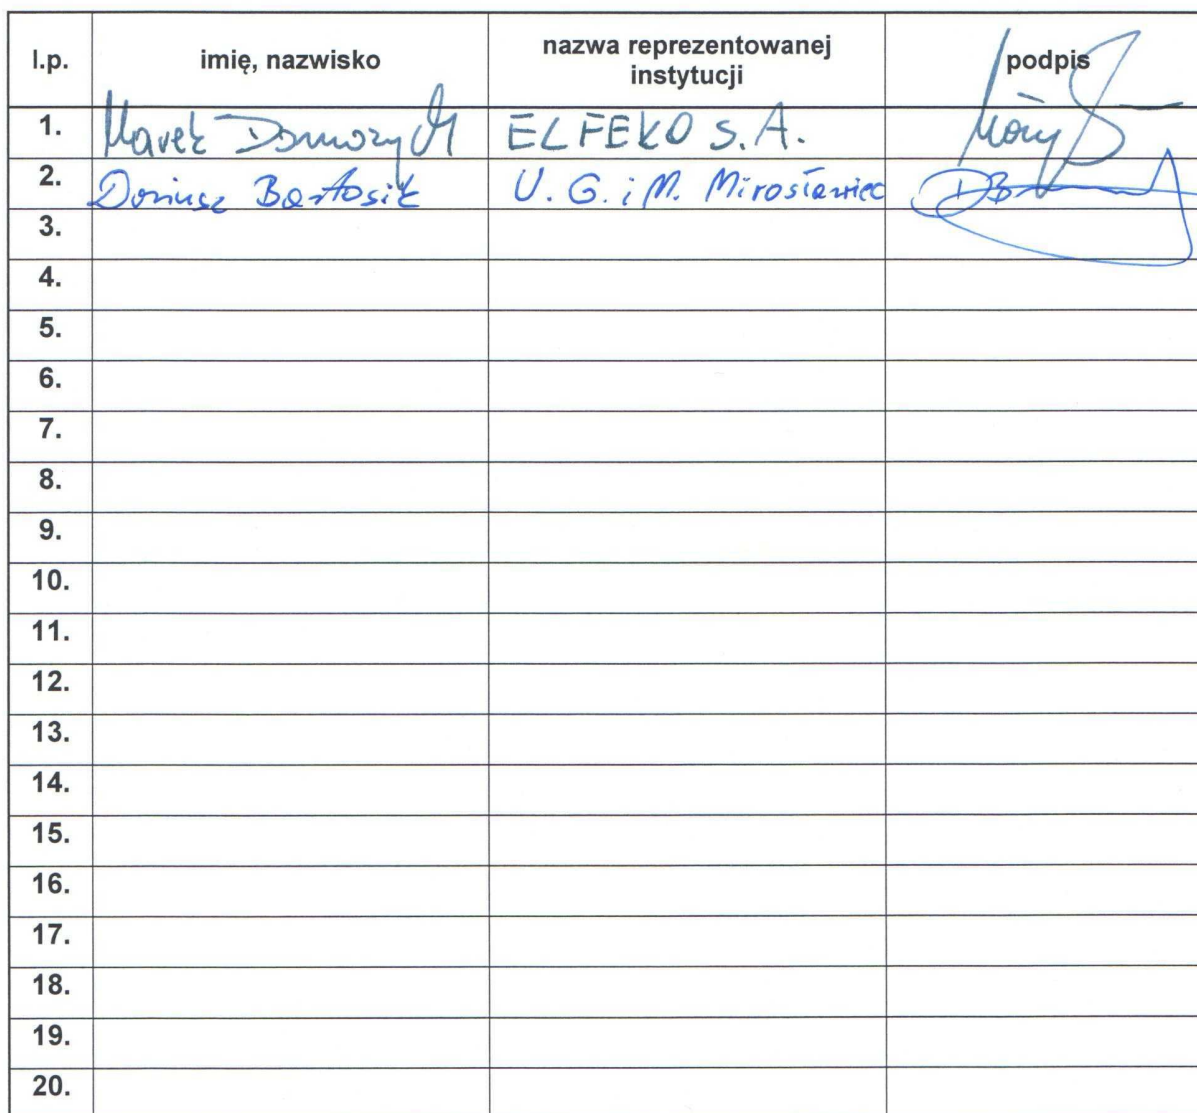 l.p. imię, nazwisko nazwa reprezentowanej instytucji podpis
1. Marek ELFEKO S.A.
2. Dariusz Bartosik U. G. i M. Mirosławiec
3.
4.
5.
6.
7.
8.
9.
10.
11.
12.
13.
14.
15.
16.
17.
18.
19.
20.